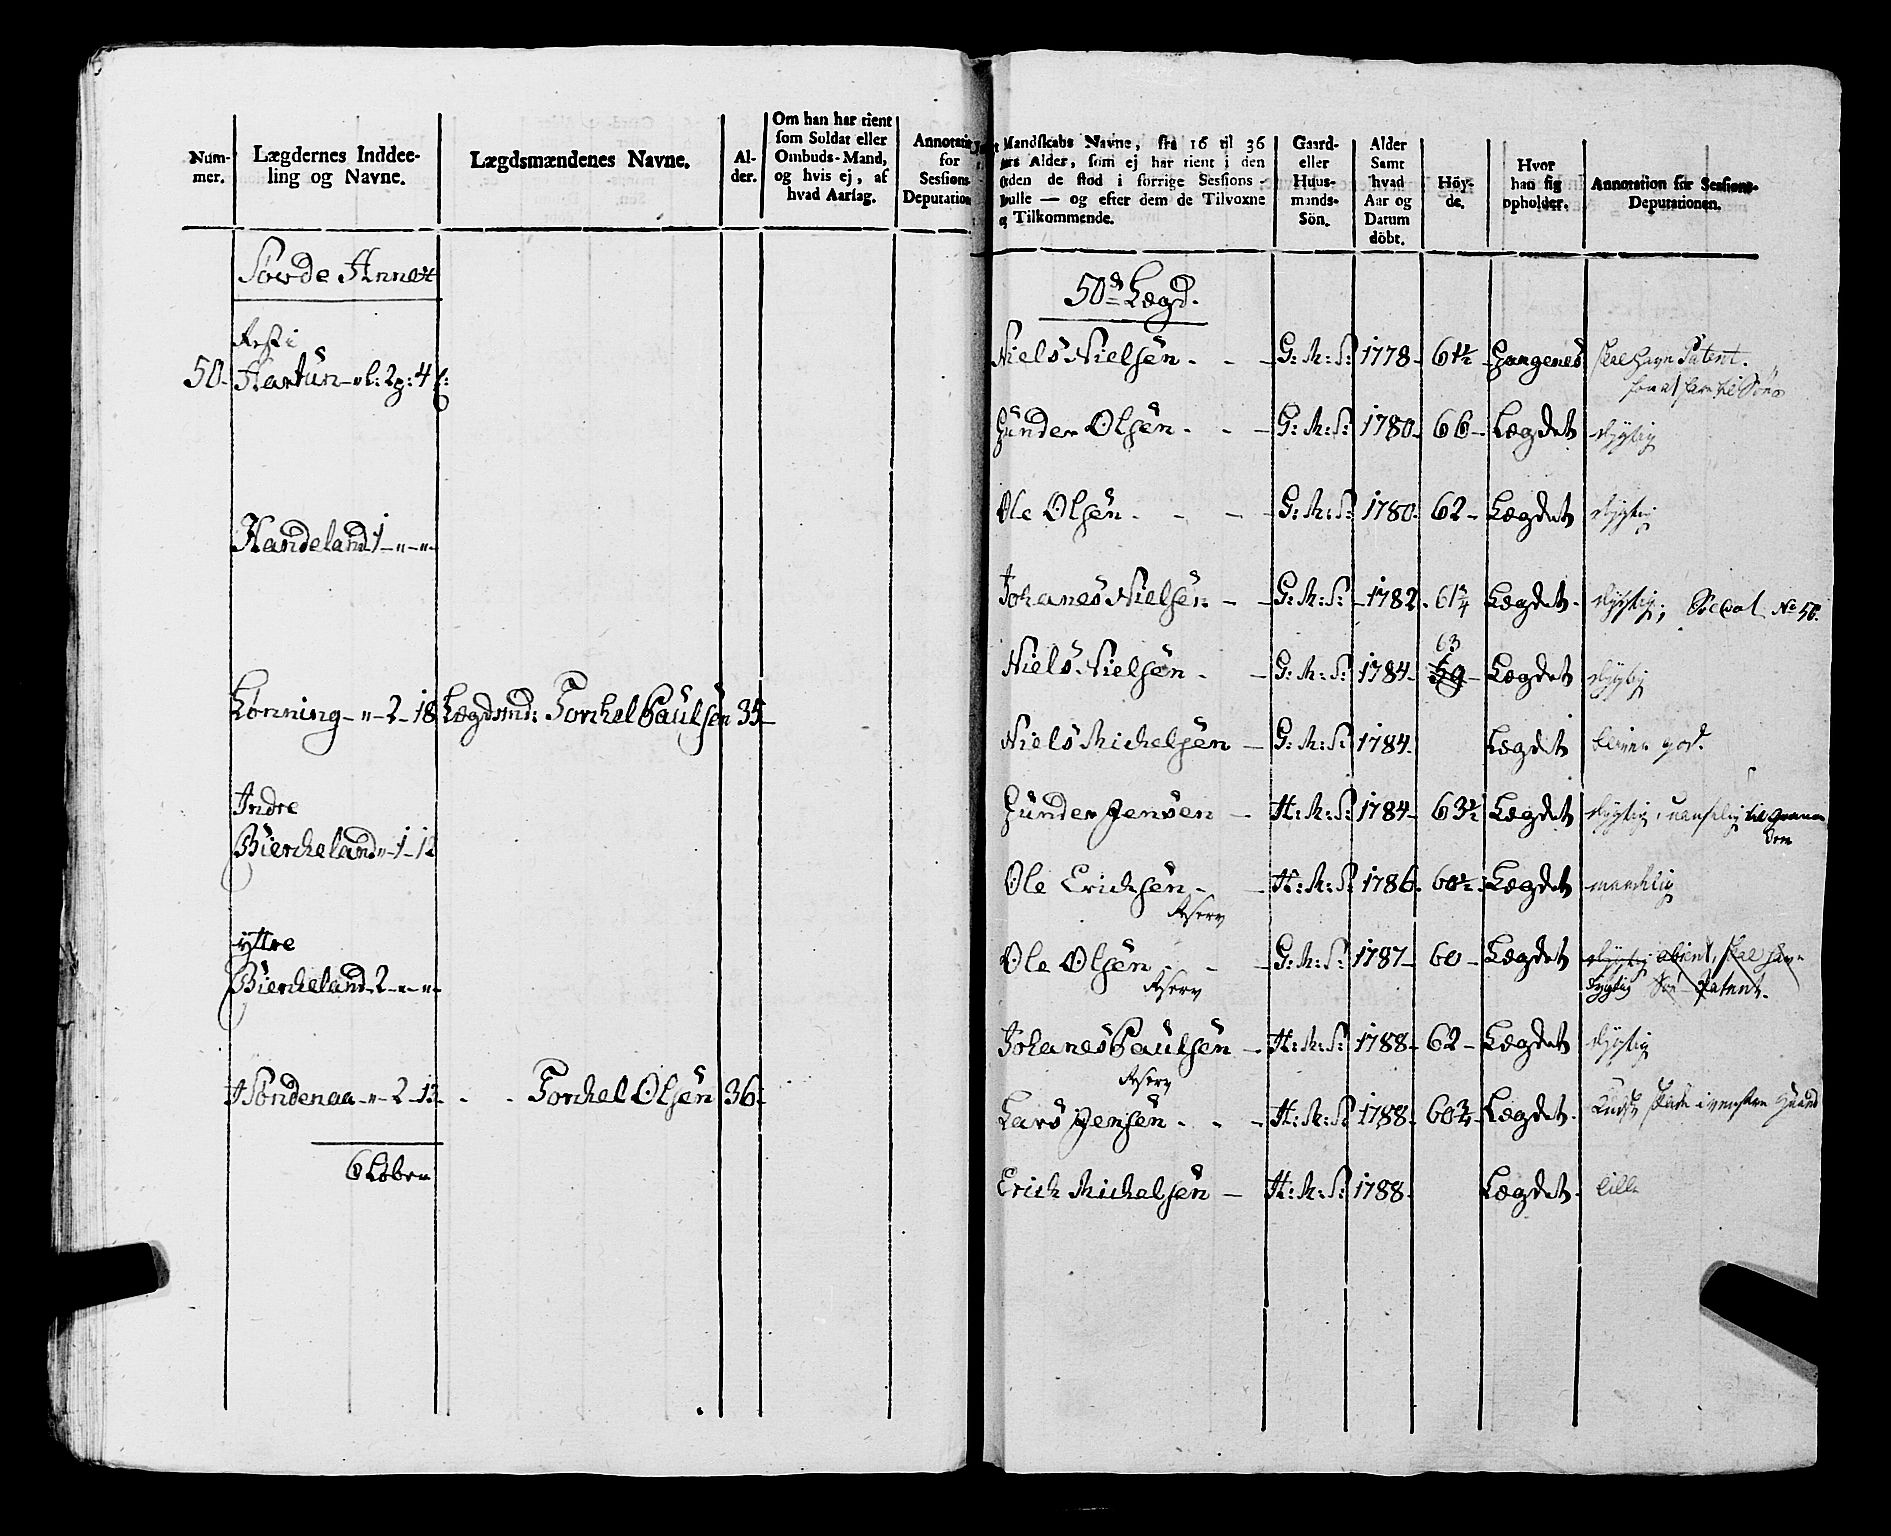 Num-
mer.
Lægdernes Inddee-
ling og Navne.
Lægdsmændenes Navne.
Al-
der.
Om han har tient
som Soldat eller
Ombuds-Mand,
og hvis ej, af
hvad Aarsag.
Annotation
for
Sessions
Deputation
Søvde Annex
Rest i
50. Hartun - l: 2p: 4
Handeland 1 - " - "
Lønning - " - 2 - 18 Lægdsmd: Torkel Paulsen 35
Indre
Bierkeland " - 1 - 12
Yttre
Bierkeland - 2 - " - "
Søndenaa - " - 2 - 13 - - Torkel Olsen 36
6 Løber
Mandskabs Navne, fra 16 til 36
Aars Alder, som ej har tient i den
Orden de stod i forrige Sessions-
Rulle — og efter dem de Tilvoxne
og Tilkommende.
Gaard-
eller
Huus-
mands-
Sön.
Alder
Samt
hvad
Aar og
Datum
döbt.
Höy-
de.
Hvor
han sig
opholder.
Annotation for Sessions-
Deputationen.
50de Lægd.
Niels Nielsen - - G: M: S: 1778 - 61½ skal have Patent.
Gunder Olsen - - G: M: S: 1780 - 66 - Lægdet dygtig
Ole Olsen - - - G: M: S: 1780 - 62 - Lægdet dygtig
Johanes Nielsen - - G: M: S: - 1782 - 61¼ Lægdet - dygtig; Soldat No 50.
63
Niels Nielsen - - G: M: S: 1784 - 59 - Lægdet dygtig
Niels Michelsen - G: M: S: 1784 - Lægdet god.
Gunder Jensen - H: M: S: 1784 - 63½ Lægdet dygtig, til
Ole Ericksen - - H: M: S: 1786 - 60½ Lægdet maadelig
Reserv
Ole Olsen - - G: M: S: 1787 - 60 - Lægdet dygtig skal have
Reserv
dygtig Patent.
Johanes Paulsen - H: M: S: 1788 - 62 - Lægdet dygtig
Reserv
Lars Jensen - - - H: M: S: 1788 - 60¾ Lægdet - skade i venstre Haand
Erich Michelsen - H: M: S: 1788 - Lægdet - lille